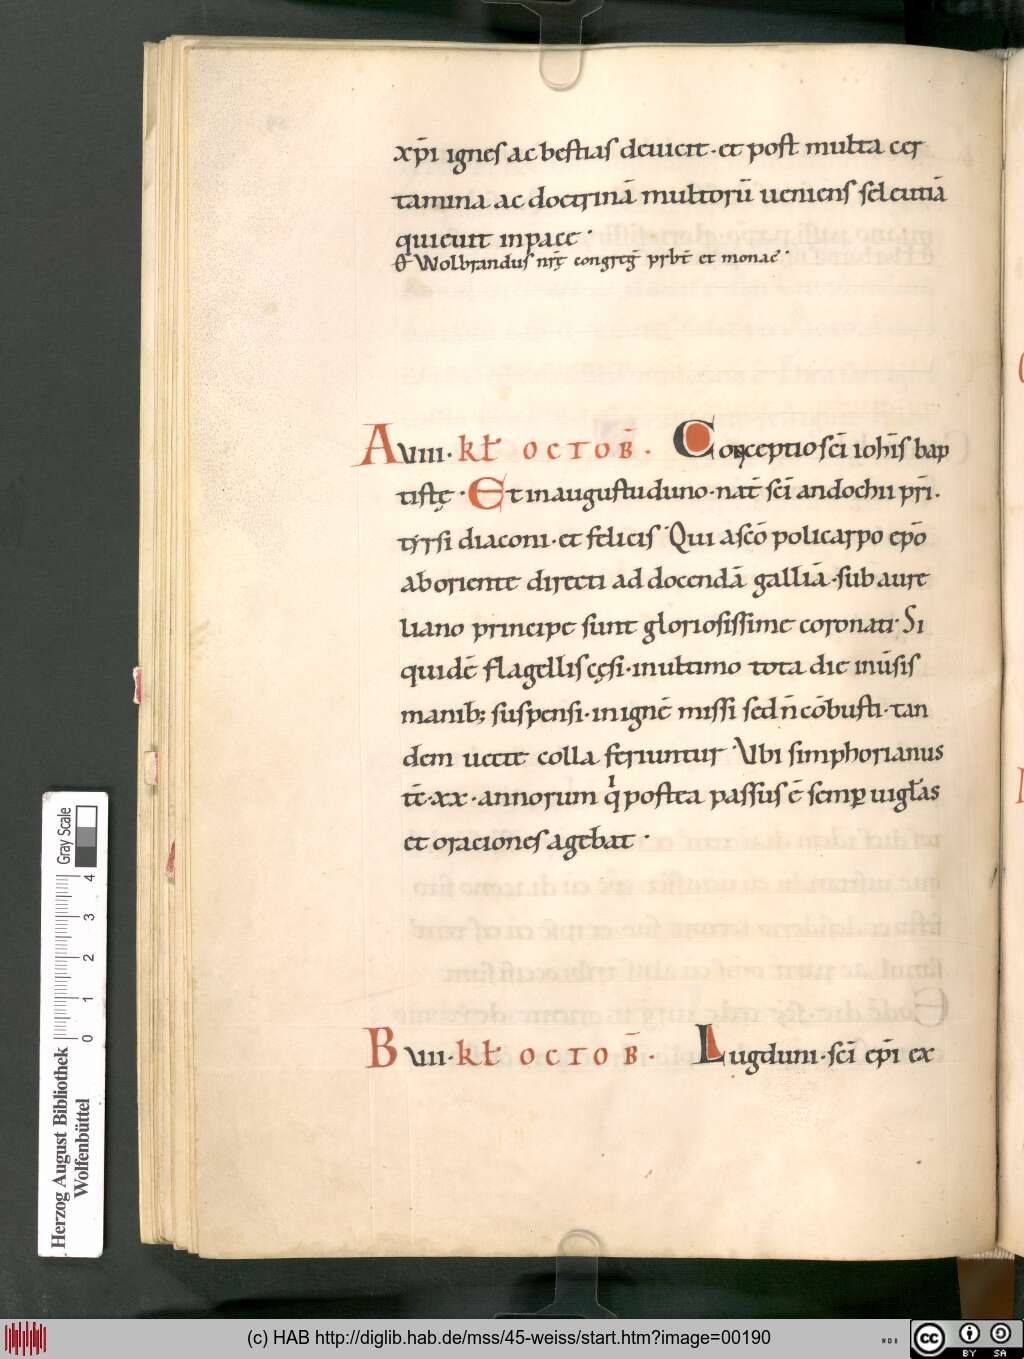 xp̄i ignes ac bestias deuicit · et post multa cer
tamina ac doctrinā multorū ueniens seleutiā
quieuit in pace ·
& Wolbrandus nr̄ę congreḡ prb̄r et monac̄ ·
A VIIII · kł OCTOB̄ · Conceptio sc̄i ioh̄is bap
tistę · Et in augustuduno · nat̄ sc̄i andochii pr̄i ·
tyrsi diaconi · et felicis · Qui a sc̄o policarpo ep̄o
ab oriente directi ad docendā galliā · sub aure
liano principe sunt gloriosissime coronati · Si
quidē flagellis cęsi · in ultimo tota die inūsis
manib; suspensi · in ignē missi sed n̄ cōbusti · tan
dem uecte colla feriuntur · Vbi simphorianus
tc̄ · xx · annorum qⁱ postea passus ē semp̱ uigłas
et oraciones agebat ·
B VIII · kł OCTOB̄ · Lugduni · sc̄i ep̄i ex
Gray Scale
0 1 2 3 4
Herzog August Bibliothek
Wolfenbüttel
(c) HAB http://diglib.hab.de/mss/45-weiss/start.htm?image=00190
cc BY SA